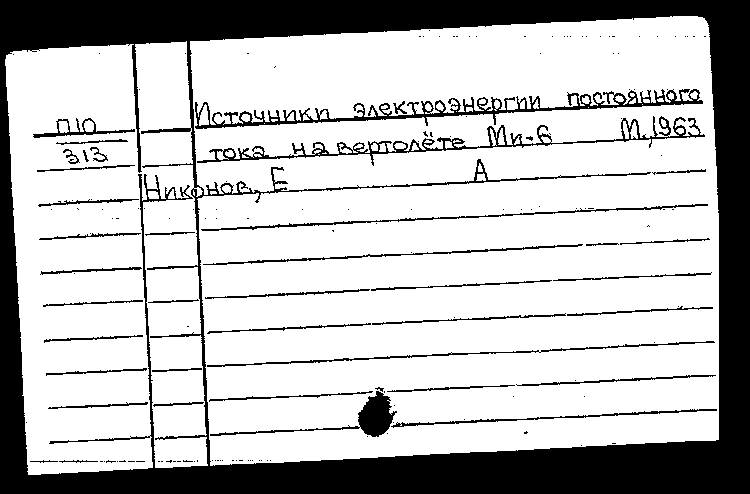 Источники электроэнергии постоянного
П10
313
тока на вертолёте Ми-6 М., 1963
Никонов, Е А